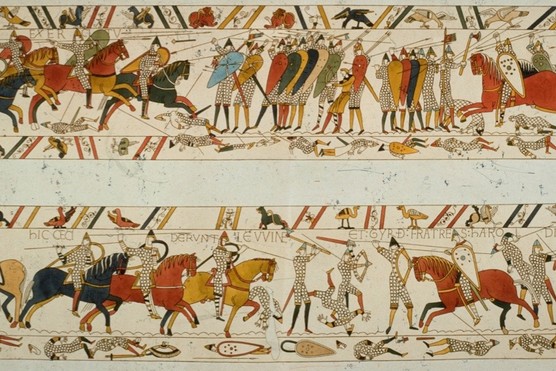 EXER
hIC CECI DERVNT LEVVIN ET GYRD: FRATRES: HARO